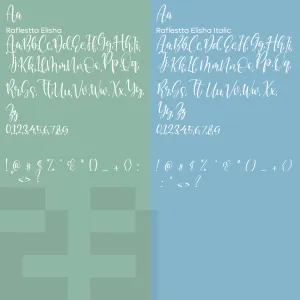 Aa
Raflestta Elisha
Aa,Bb,Cc,Dd,Ee,Ff,Gg,Hh,Ii,
Jj,Kk,Ll,Mm,Nn,Oo,Pp,Qq,
Rr,Ss,Tt,Uu,Vv,Ww,Xx,Yy,
Zz
0,1,2,3,4,5,6,7,8,9
! @ # $ % ^ & * () _ + {} :
" <> ?
Aa
Raflestta Elisha Italic
Aa,Bb,Cc,Dd,Ee,Ff,Gg,Hh,Ii,
Jj,Kk,Ll,Mm,Nn,Oo,Pp,Qq,
Rr,Ss,Tt,Uu,Vv,Ww,Xx,Yy,
Zz
0,1,2,3,4,5,6,7,8,9
! @ # $ % ^ & * () _ + {}
: " <> ?